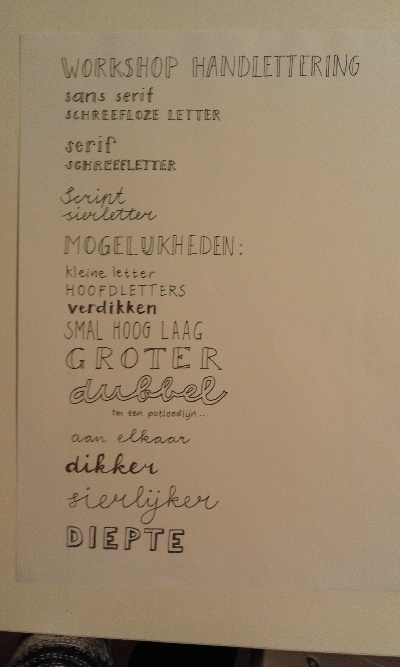 WORKSHOP HANDLETTERING
sans serif
SCHREEFLOZE LETTER
serif
SCHREEFLETTER
Script
sierletter
MOGELIJKHEDEN:
kleine letter
HOOFDLETTERS
verdikken
SMAL HOOG LAAG
GROTER
dubbel
om een potloodlijn...
aan elkaar
dikker
sierlijker
DIEPTE